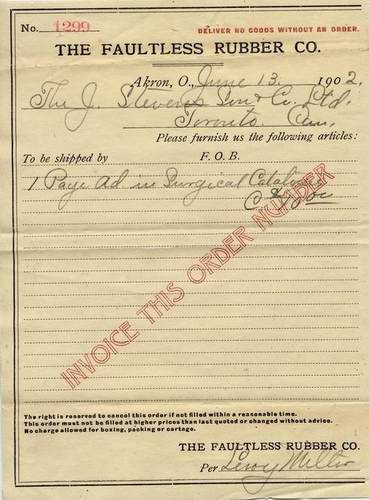 No. 1299
DELIVER NO GOODS WITHOUT AN ORDER.
THE FAULTLESS RUBBER CO.
Akron, O., June 13. 1902.
The J. Stevens Son & Co. Ltd.
Toronto Can.
Please furnish us the following articles:
To be shipped by F. O. B.
1 Page Ad in Surgical Catalogue
INVOICE THIS ORDER NUMBER
The right is reserved to cancel this order if not filled within a reasonable time.
This order must not be filled at higher prices than last quoted or changed without advice.
No charge allowed for boxing, packing or cartage.
THE FAULTLESS RUBBER CO.
Per Leroy Miller